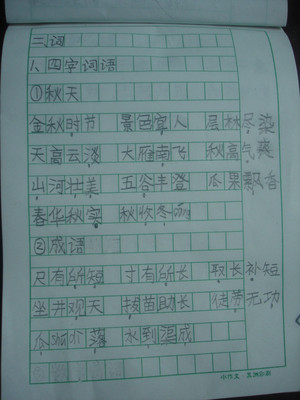 二、词
1、四字词语
①秋天
金秋时节 景色宜人 层林尽染
天高云淡 大雁南飞 秋高气爽
山河壮美 五谷丰登 瓜果飘香
春华秋实 秋收冬藏
②成语
尺有所短 寸有所长 取长补短
坐井观天 拔苗助长 徒劳无功
瓜熟蒂落 水到渠成
小作文